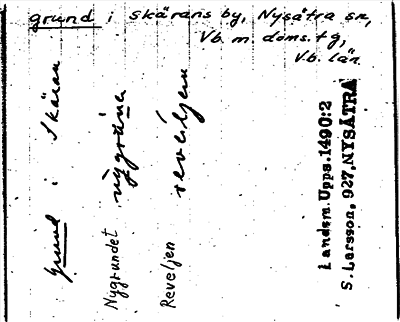 grund i Skärans by, Nysätra sn,
Vb. m. doms. tg,
Vb. län.
Grund i Skäran
Nygrundet
Reveljen reveljen
Landsm. Upps. 1490:2
S. Larsson, 927, NYSÄTRA